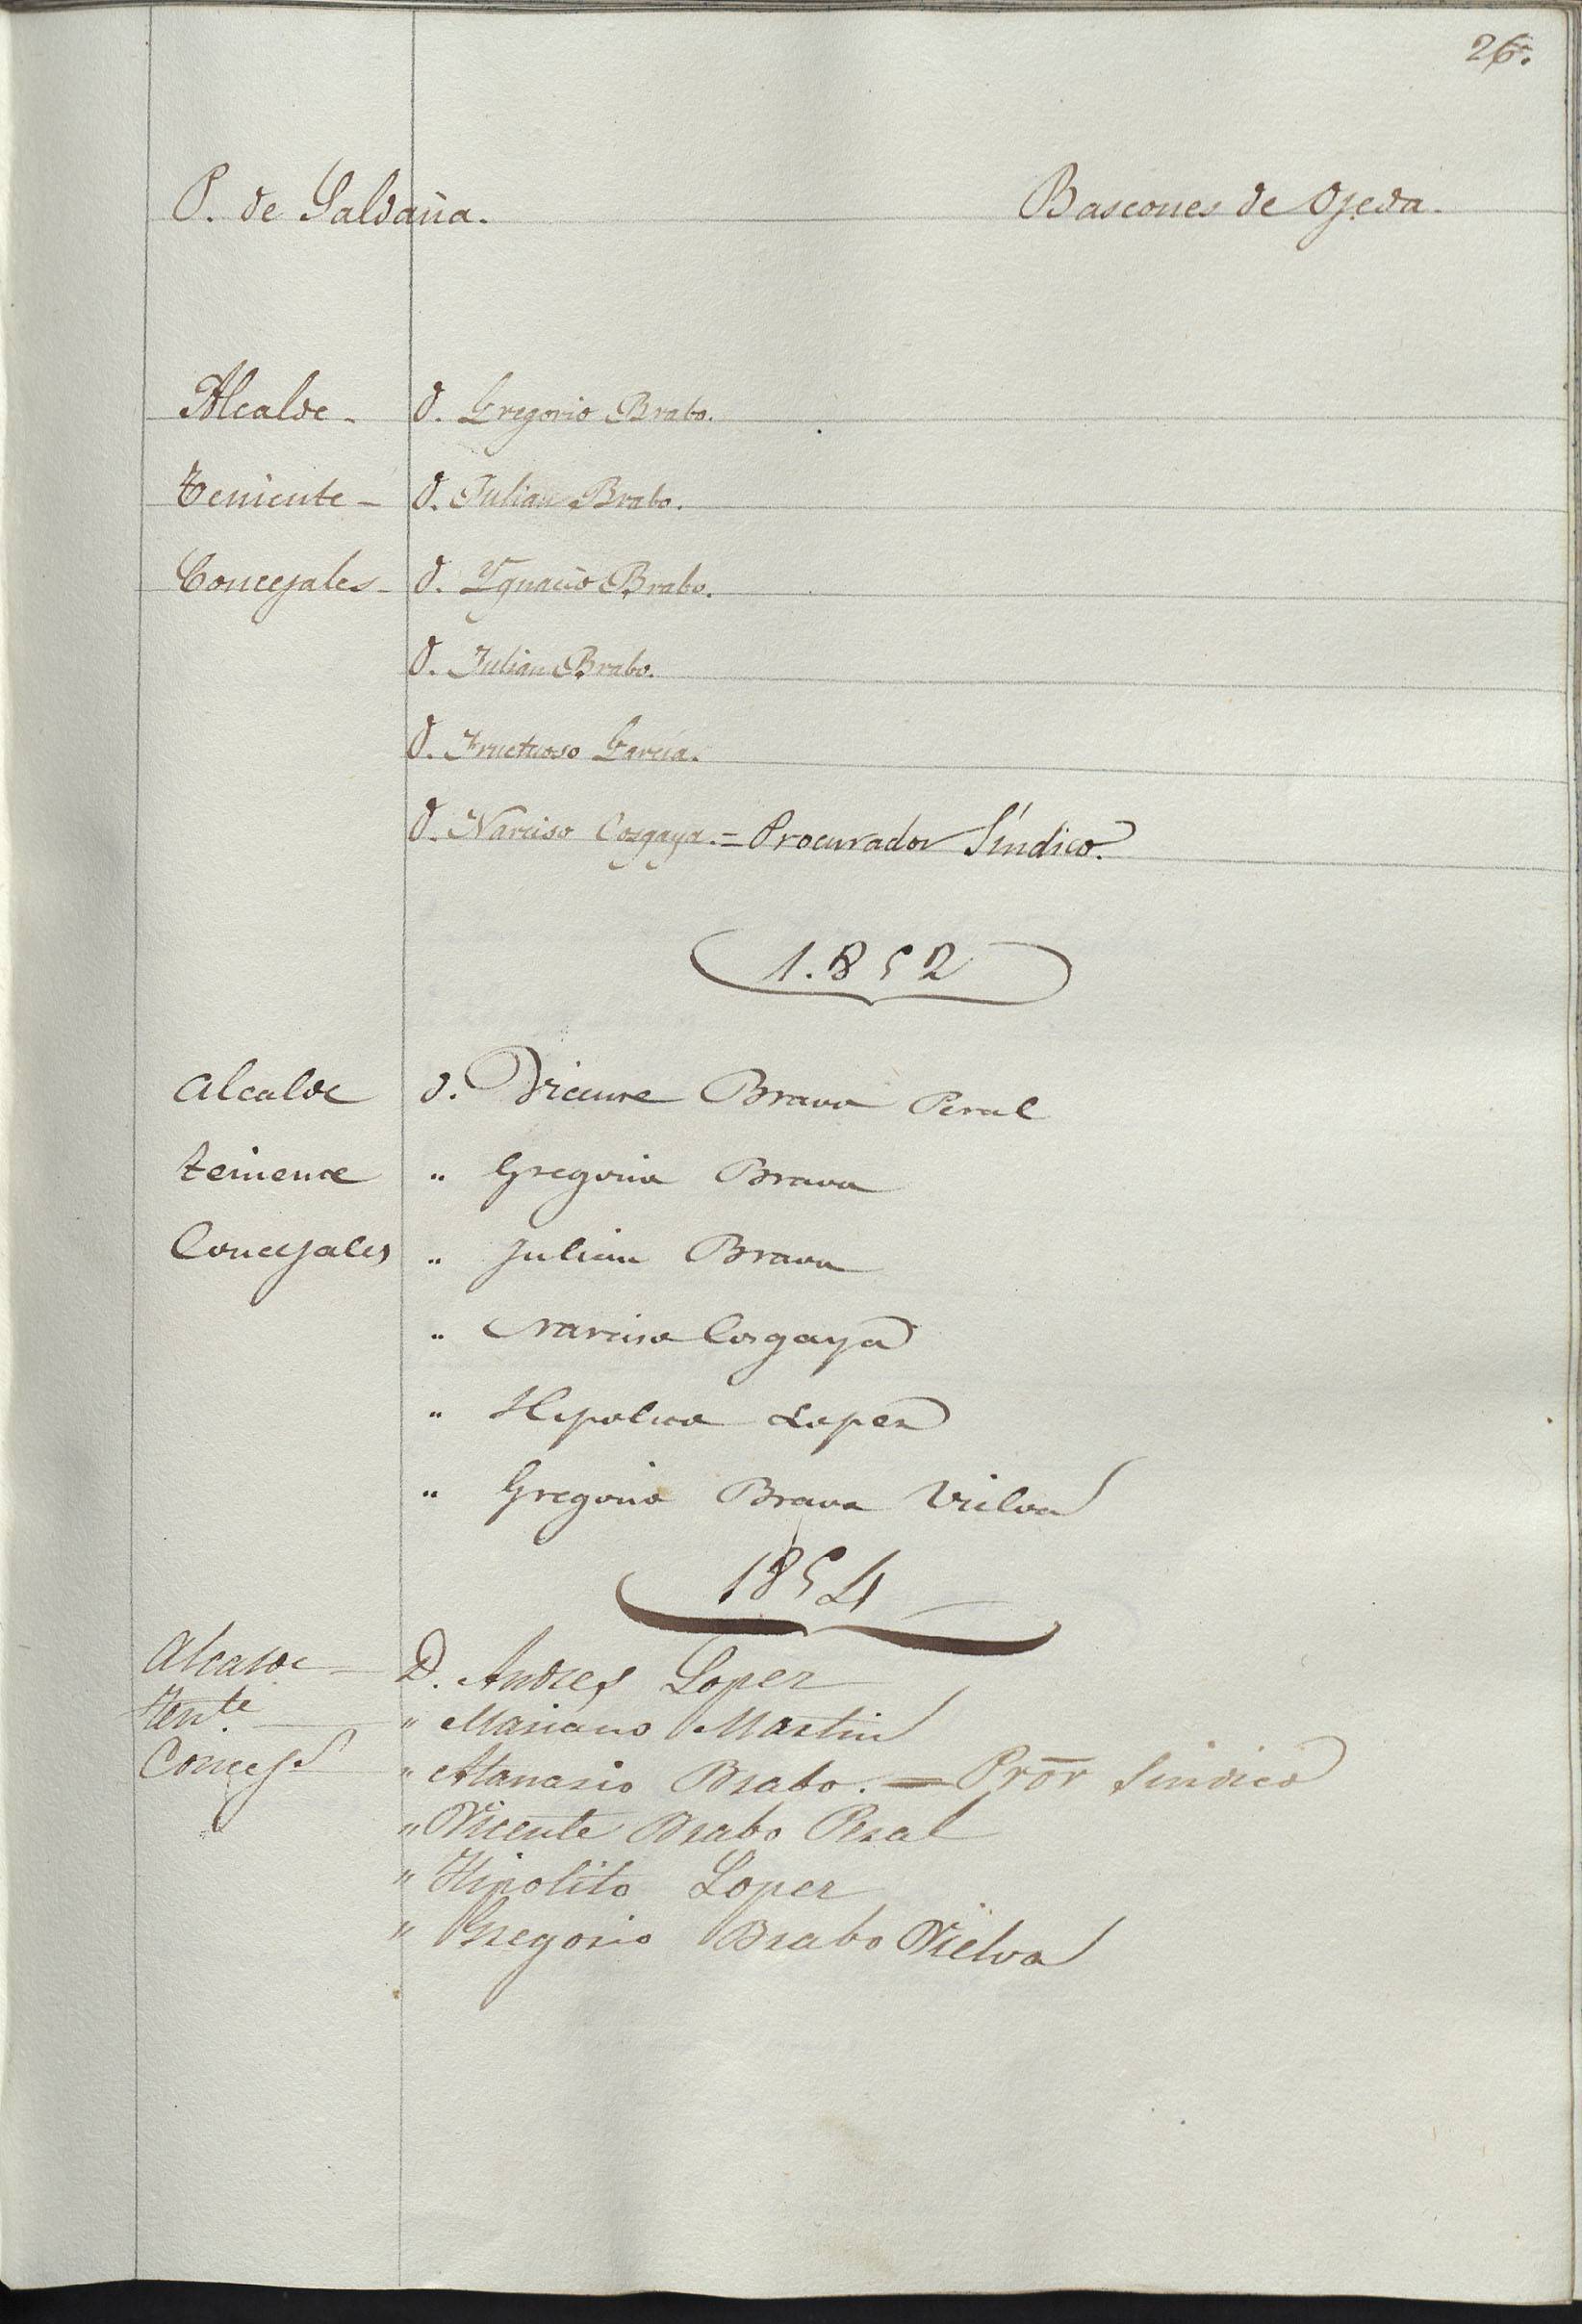 26.
P. de Saldaña. Bascones de Ojeda.
Alcalde - D. Gregorio Brabo.
Teniente - D. Julian Brabo.
Concejales - D. Ygnacio Brabo.
D. Julian Brabo.
D. Fructuoso García.
D. Narciso Cosgaya. = Procurador Síndico.
1.852
Alcalde D. Vicente Bravo Peral
teniente " Gregorio Bravo
Concejales " Julian Bravo
" Narciso Cosgaya
" Hipolito Lopez
" Gregorio Bravo Vielva
1854
Alcalde D. Andres Lopez
Tente. " Mariano Martin
Concejs " Atanasio Brabo. = Pror Sindico
" Vicente Brabo Peral
" Hipolito Lopez
" Gregorio Brabo Vielva